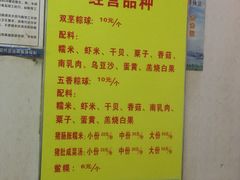 经营品种
双烹粽球：10元/个
配料：
糯米、虾米、干贝、栗子、香菇、
南乳肉、乌豆沙、蛋黄、羔烧白果
五香粽球：10元/个
配料：
糯米、虾米、干贝、香菇、南乳肉、
栗子、蛋黄、羔烧白果
猪肠胀糯米：小份 中份 大份
猪肚咸菜汤：小份 中份 大份
6元/个